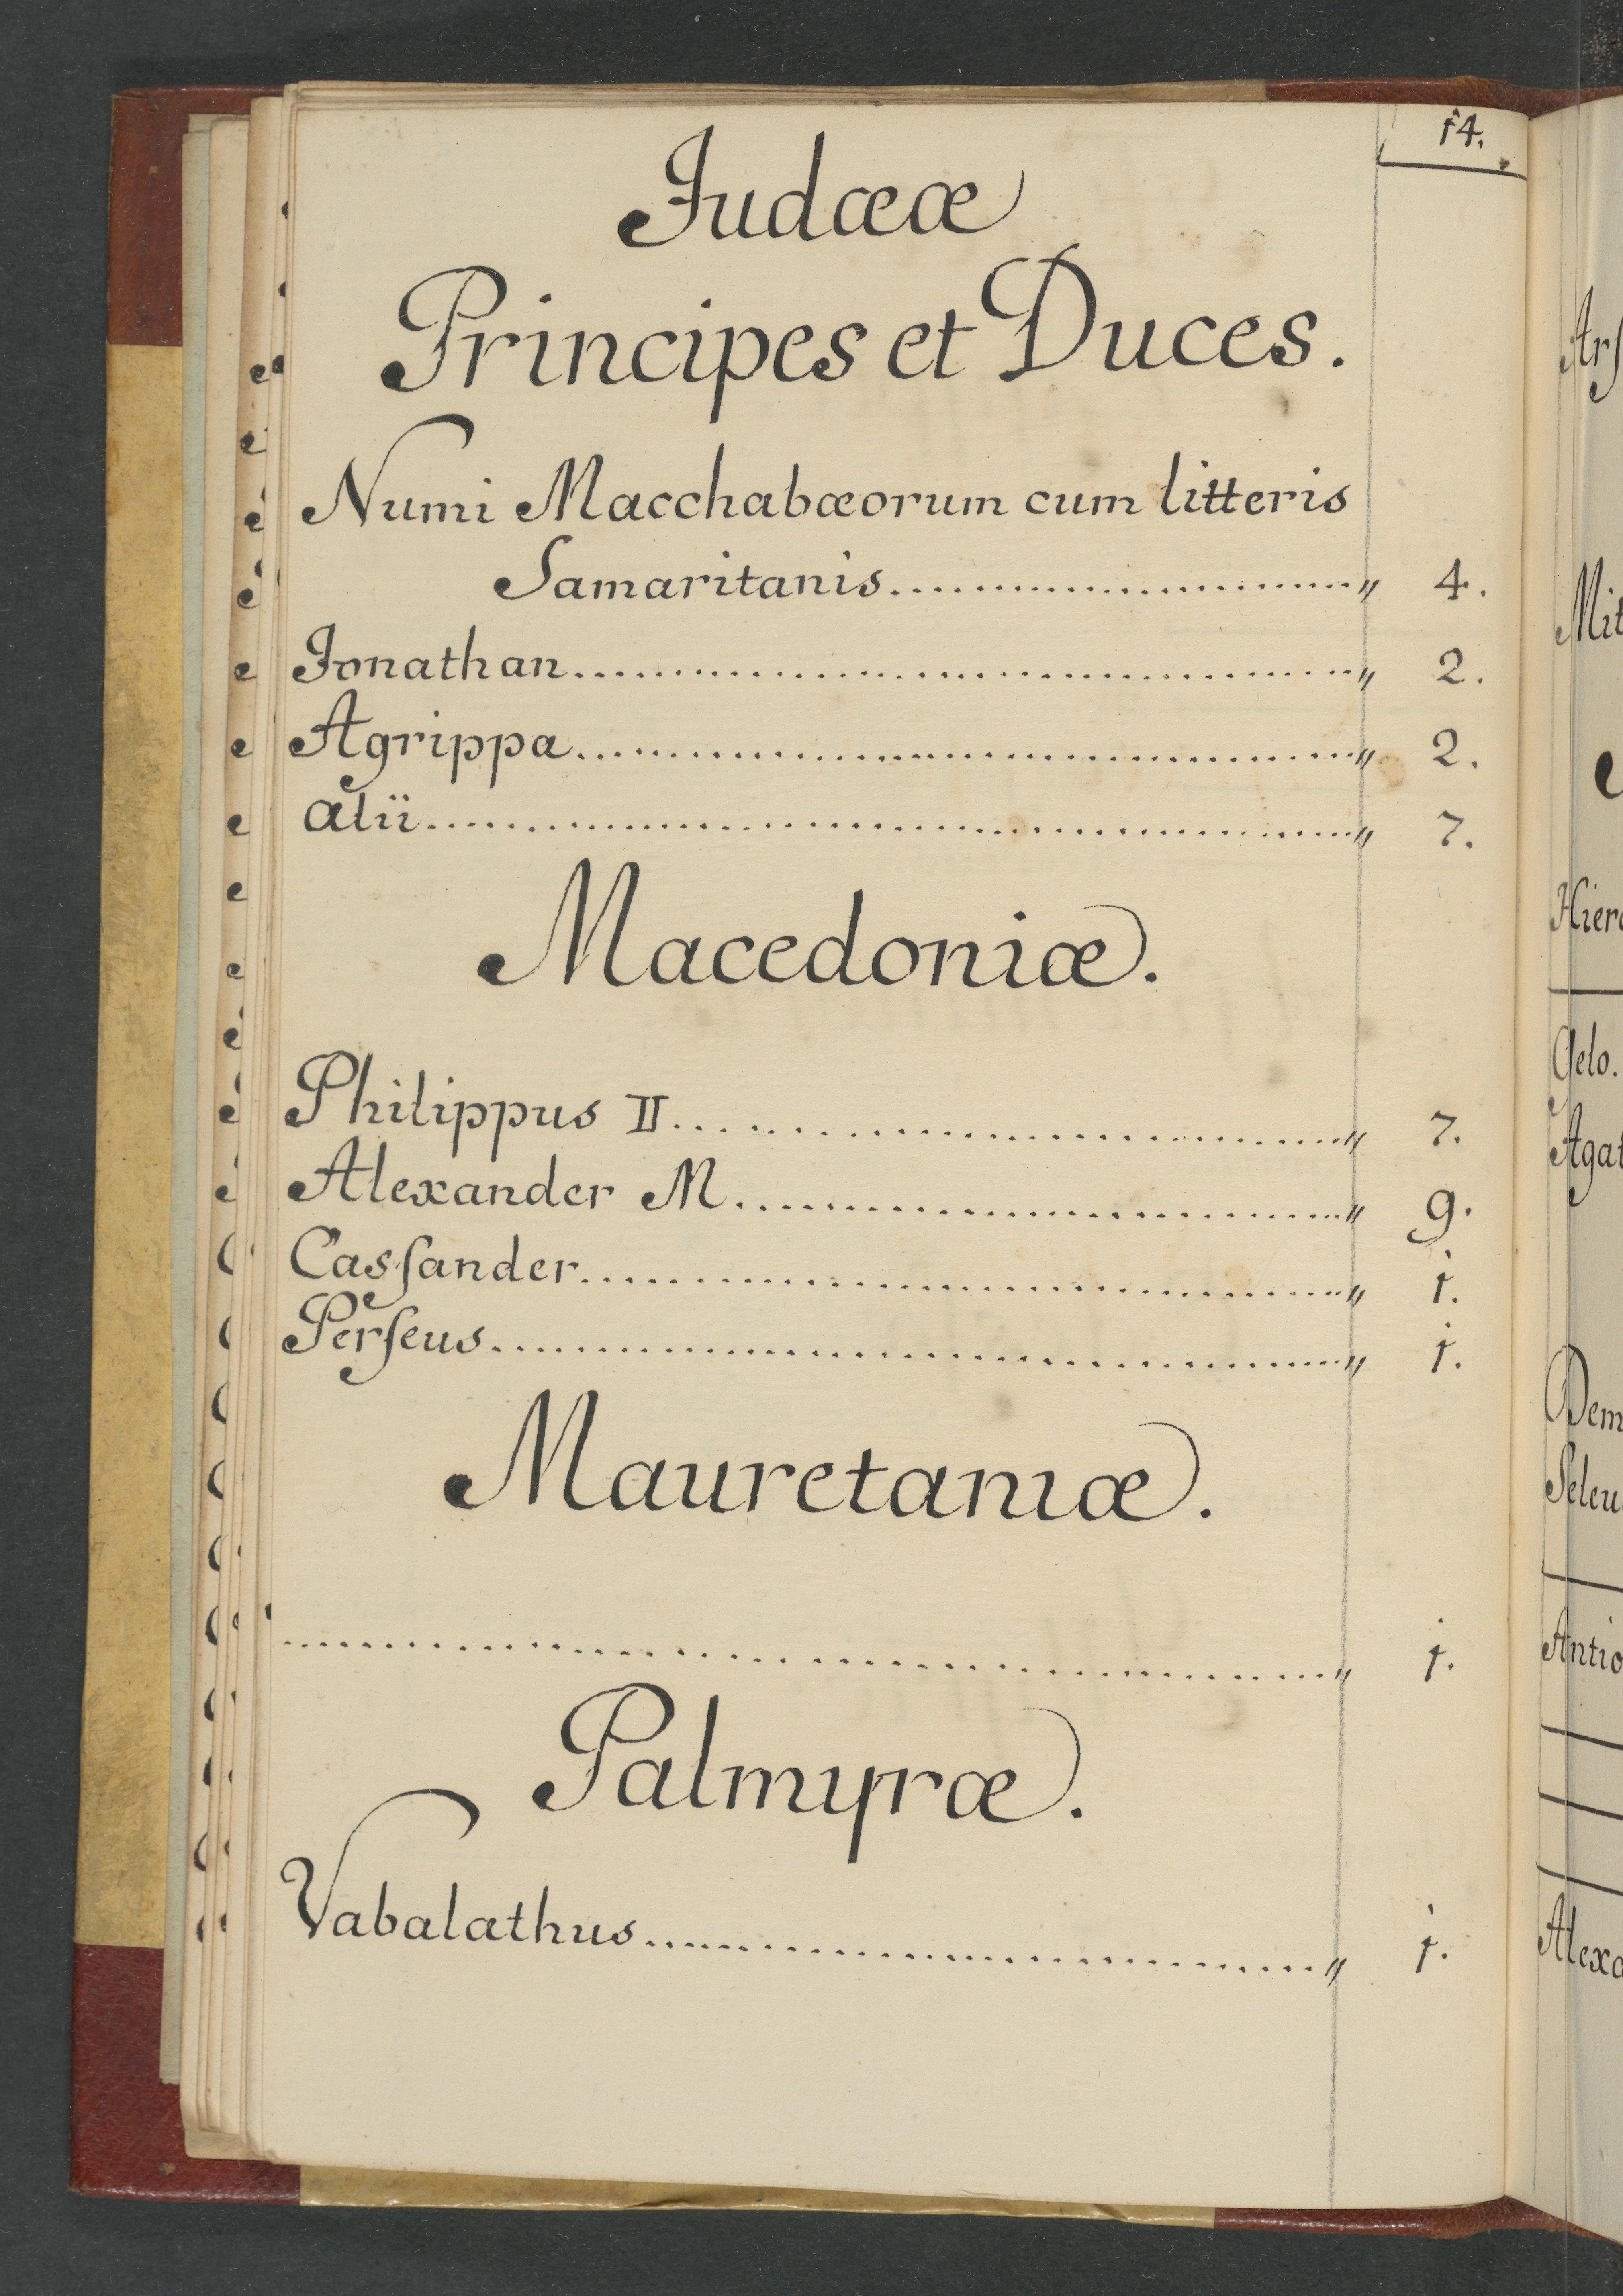 14.
Judææ
Principes et Duces.
Numi Macchabæorum cum litteris
Samaritanis.................... " 4.
Jonathan.................... " 2.
Agrippa.................... " 2.
alii.................... " 7.
Macedoniæ.
Philippus II.................... " 7.
Alexander M.................... " 9.
Casſander.................... " 1.
Perſeus.................... " 1.
Mauretaniæ.
.................... " 1.
Palmyræ.
Vabalathus.................... " 1.
Gelo.